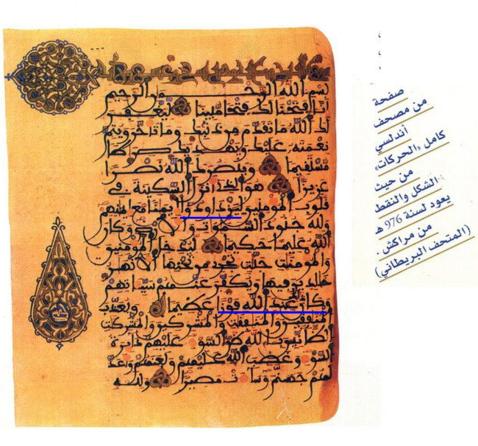 بسم الله الرحمن الرحيم
إنا فتحنا لك فتحا مبينا ليغفر
لك الله ما تقدم من ذنبك وما تأخر ويتم
نعمته عليك ويهديك صراطا
مستقيما وينصرك الله نصرا
عزيزا هو الذي أنزل السكينة في
قلوب المؤمنين ليزدادوا إيمنا مع إيمنهم
ولله جنود السموت والأرض وكان
الله عليما حكيما ليدخل المؤمنين
والمؤمنت جنت تجري من تحتها الأنهر
خلدين فيها ويكفر عنهم سيئاتهم
وكان ذلك عند الله فوزا عظيما ويعذب
المنفقين والمنفقت والمشركين والمشركت
الظانين بالله ظن السوء عليهم دائرة
السوء وغضب الله عليهم ولعنهم وأعد
لهم جهنم وساءت مصيرا ولله
صفحة
من مصحف
أندلسي
كامل «الحركات»
من حيث
الشكل والنقط
يعود لسنة 976 هـ
من مراكش.
(المتحف البريطاني)